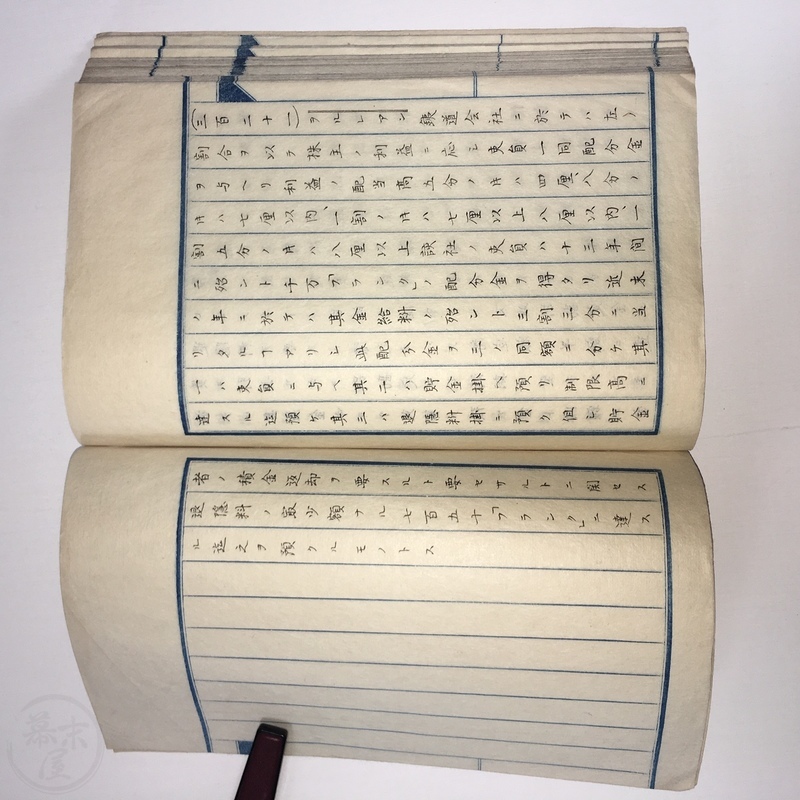 (三百二十一)ヲルレアン鉄道会社ニ於テハ左ノ
割合ヲ以テ株主ノ利益ニ応シ吏員一同配分金
ヲ与ヘリ利益ノ配当高五分ノ片ハ四厘、八分ノ
片ハ七厘以内、一割ノ片ハ七厘以上八厘以内、一
割五分ノ片ハ八厘以上該社ノ吏員ハ十三年間
ニ殆ント千万「フランク」ノ配分金ヲ得タリ近来
ノ年ニ於テハ其金給料ノ殆ント三割三分ニ当
リタルヿアリシ此配分金ヲ三ノ同額ニ分ケ其
一ハ吏員ニ与ヘ其二ハ貯金掛ヘ預リ制限高ニ
達スル迄預ケ其三ハ退隠料掛ニ預ク但シ貯金
者ノ積金返却ヲ要スルト要セサルトニ関セス
退隠料ノ最少額ナル七百五十「フランク」ニ達ス
ル迄之ヲ預クルモノトス
幕末屋